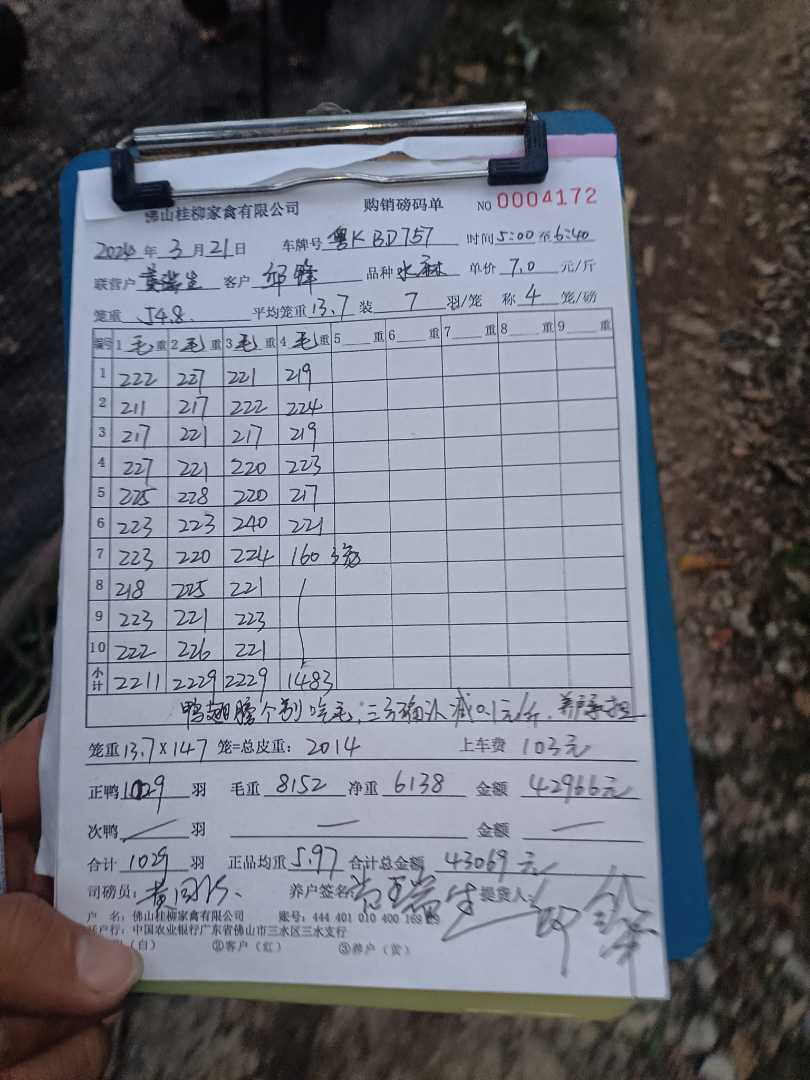 佛山桂柳家禽有限公司 购销磅码单 NO 0004172
2024 年 3 月 21 日 车牌号 粤K BD757 时间 5:00 至 6:40
联营户 客户 邱锋 品种 水麻 单价 7.0 元/斤
笼重 54.8 平均笼重 13.7 装 7 羽/笼 称 4 笼/磅
编号 1 毛 重 2 毛 重 3 毛 重 4 毛 重 5 重 6 重 7 重 8 重 9 重
1 222 227 221 219
2 211 217 222 224
3 217 221 217 219
4 227 221 220 223
5 225 228 220 217
6 223 223 240 221
7 223 220 224 160 3笼
8 218 225 221
9 223 221 223
10 222 226 221
小计 2211 2229 2229 1483
鸭翅膀个别吃毛,三方确认减0.1元/斤,养户承担
笼重 13.7 X 147 笼=总皮重: 2014 上车费 103元
正鸭 1029 羽 毛重 8152 净重 6138 金额 42966元
次鸭 / 羽 — 金额 —
合计 1029 羽 正品均重 5.97 合计总金额 43069 元
司磅员: 养户签名: 提货人:
户 名: 佛山桂柳家禽有限公司 账号: 444 401 010 400 169
开户行: 中国农业银行广东省佛山市三水区三水支行
(白) ②客户(红) ③养户(黄)